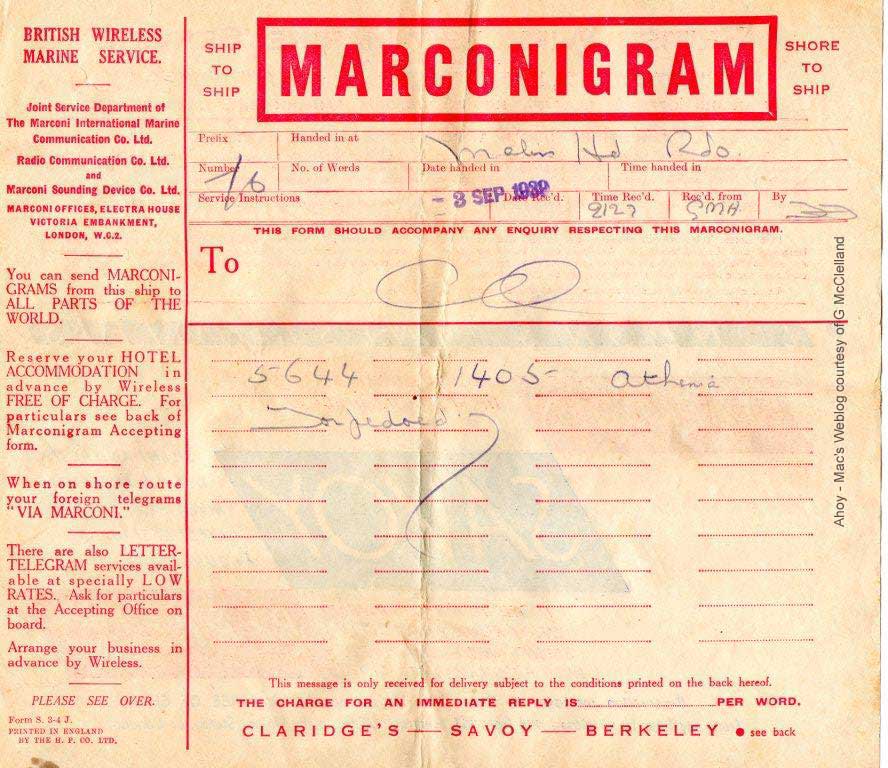 BRITISH WIRELESS
MARINE SERVICE.
Joint Service Department of
The Marconi International Marine
Communication Co. Ltd.
Radio Communication Co. Ltd.
and
Marconi Sounding Device Co. Ltd.
MARCONI OFFICES, ELECTRA HOUSE
VICTORIA EMBANKMENT,
LONDON, W.C.2.
You can send MARCONI-
GRAMS from this ship to
ALL PARTS OF THE
WORLD.
Reserve your HOTEL
ACCOMMODATION in
advance by Wireless
FREE OF CHARGE. For
particulars see back of
Marconigram Accepting
form.
When on shore route
your foreign telegrams
"VIA MARCONI."
There are also LETTER-
TELEGRAM services avail-
able at specially LOW
RATES. Ask for particulars
at the Accepting Office on
board.
Arrange your business in
advance by Wireless.
PLEASE SEE OVER.
Form S. 3-4 J.
PRINTED IN ENGLAND
BY THE H. P. CO. LTD.
SHIP
TO
SHIP
MARCONIGRAM
SHORE
TO
SHIP
Prefix Handed in at Malin Hd Rdo.
Number No. of Words Date handed in Time handed in
Service Instructions - 3 SEP 1939 Date Rec'd. Time Rec'd. Rec'd. from By
2127 GMH
THIS FORM SHOULD ACCOMPANY ANY ENQUIRY RESPECTING THIS MARCONIGRAM.
To
CQ
5644 1405 Athenia
Torpedoed
This message is only received for delivery subject to the conditions printed on the back hereof.
THE CHARGE FOR AN IMMEDIATE REPLY IS PER WORD.
CLARIDGE'S — SAVOY — BERKELEY ● see back
Ahoy - Mac's Weblog courtesy of G McClelland